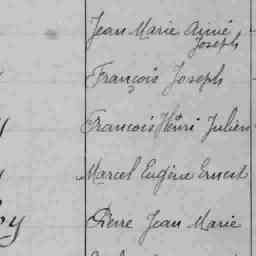 Jean Marie Aimé
Joseph
François Joseph
Francois Henri Julien
Marcel Eugène Ernest
Pierre Jean Marie